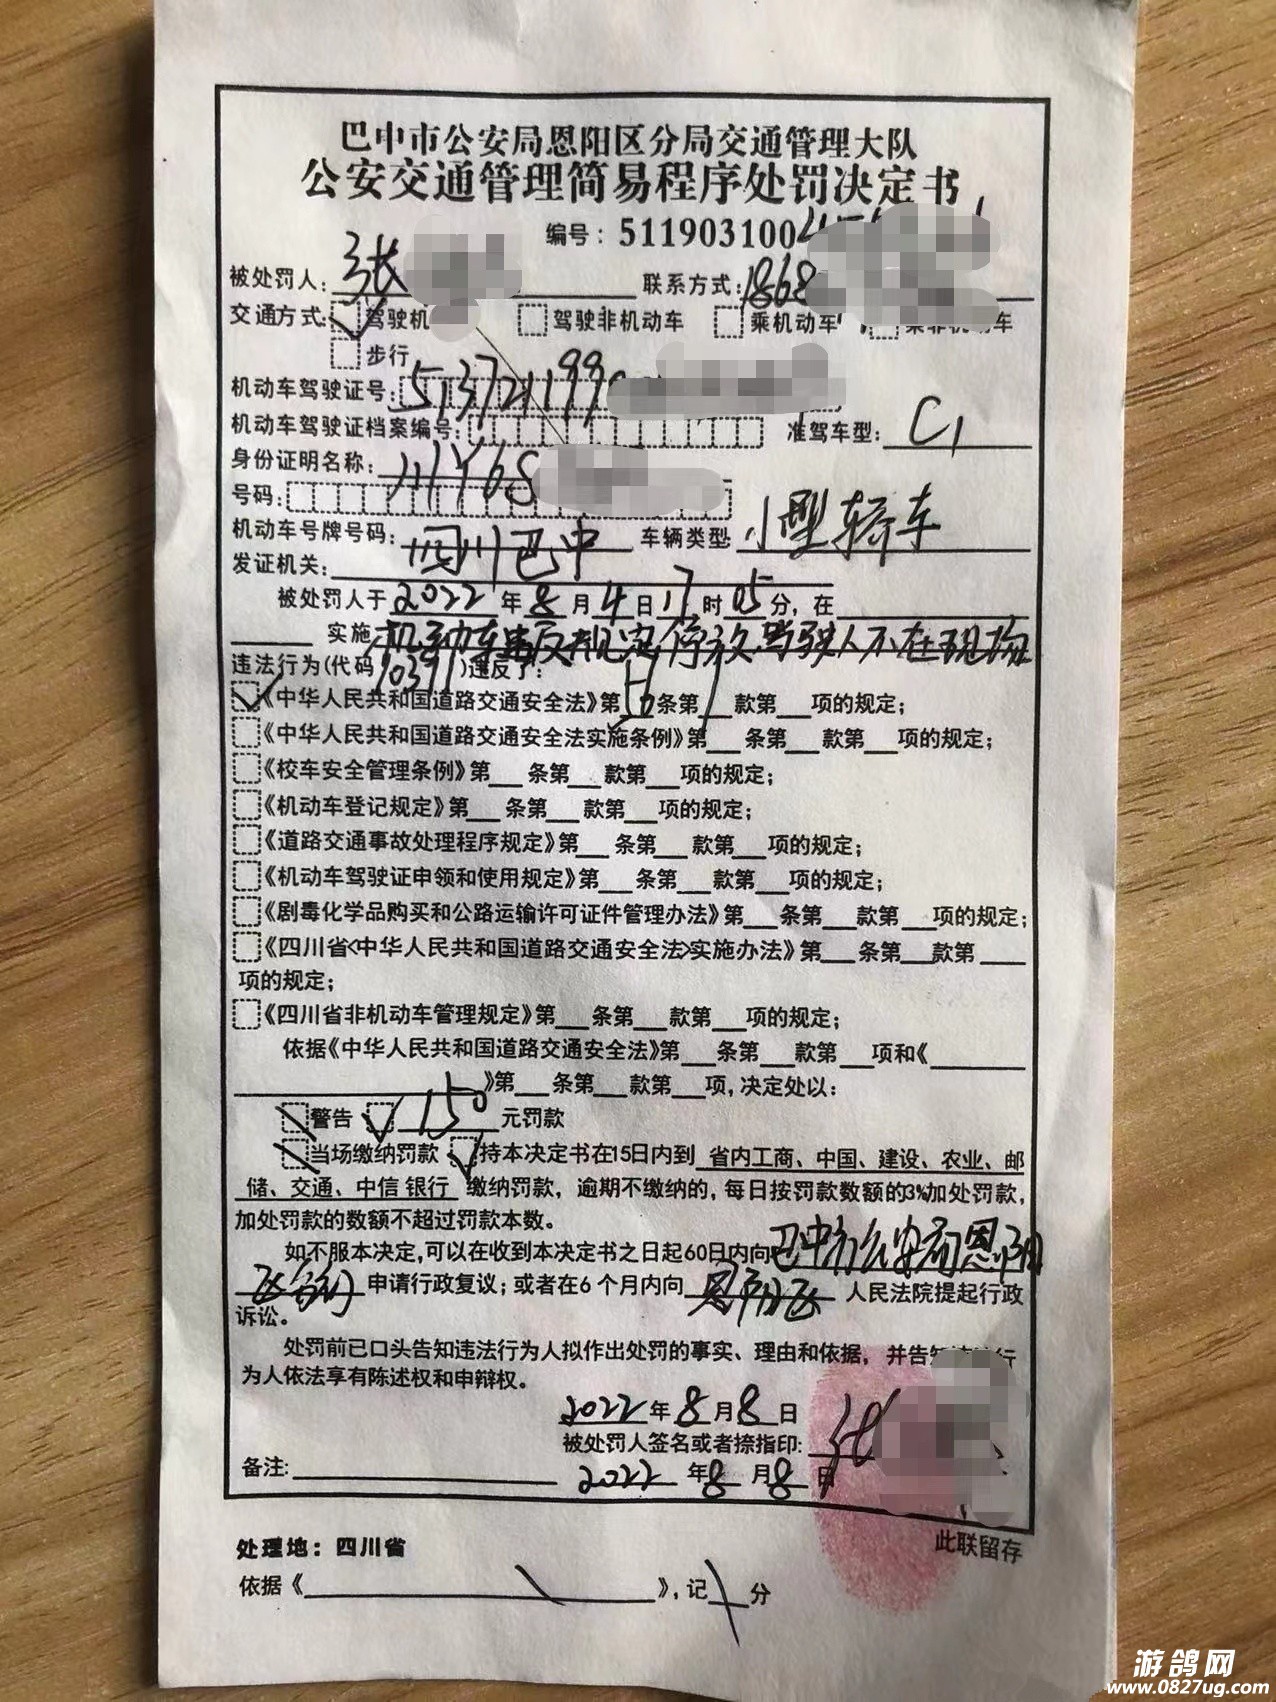 巴中市公安局恩阳区分局交通管理大队
公安交通管理简易程序处罚决定书
编号：511903100
被处罚人：张 联系方式：1868
交通方式：驾驶机 驾驶非机动车 乘机动车 乘非机动车
步行
机动车驾驶证号：513721199
机动车驾驶证档案编号： 准驾车型：C1
身份证明名称：川Y68
号码：
机动车号牌号码：四川巴中 车辆类型：小型轿车
发证机关：
被处罚人于2022年8月4日17时05分，在
实施机动车违反规定停放，驾驶人不在现场
违法行为(代码10391)违反了：
《中华人民共和国道路交通安全法》第 条第 款第 项的规定；
《中华人民共和国道路交通安全法实施条例》第 条第 款第 项的规定；
《校车安全管理条例》第 条第 款第 项的规定；
《机动车登记规定》第 条第 款第 项的规定；
《道路交通事故处理程序规定》第 条第 款第 项的规定；
《机动车驾驶证申领和使用规定》第 条第 款第 项的规定；
《剧毒化学品购买和公路运输许可证件管理办法》第 条第 款第 项的规定；
《四川省<中华人民共和国道路交通安全法>实施办法》第 条第 款第
项的规定；
《四川省非机动车管理规定》第 条第 款第 项的规定；
依据《中华人民共和国道路交通安全法》第 条第 款第 项和《
》第 条第 款第 项，决定处以：
警告 150 元罚款
当场缴纳罚款 持本决定书在15日内到 省内工商、中国、建设、农业、邮
储、交通、中信银行 缴纳罚款，逾期不缴纳的，每日按罚款数额的3%加处罚款，
加处罚款的数额不超过罚款本数。
如不服本决定，可以在收到本决定书之日起60日内向巴中市公安局恩阳
区分局申请行政复议；或者在6个月内向 恩阳区 人民法院提起行政
诉讼。
处罚前已口头告知违法行为人拟作出处罚的事实、理由和依据，并告知 行
为人依法享有陈述权和申辩权。
2022年8月8日
被处罚人签名或者捺指印：张
备注： 2022年8月8日
此联留存
处理地：四川省
依据《 》，记 分
游鸽网
www.0827ug.com